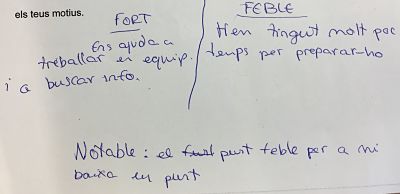 els teus motius.
FORT
Ens ajuda a
treballar en equip.
i a buscar info.
FEBLE
Hem tingut molt poc
temps per preparar-ho
Notable: el punt feble per a mi
baixa un punt